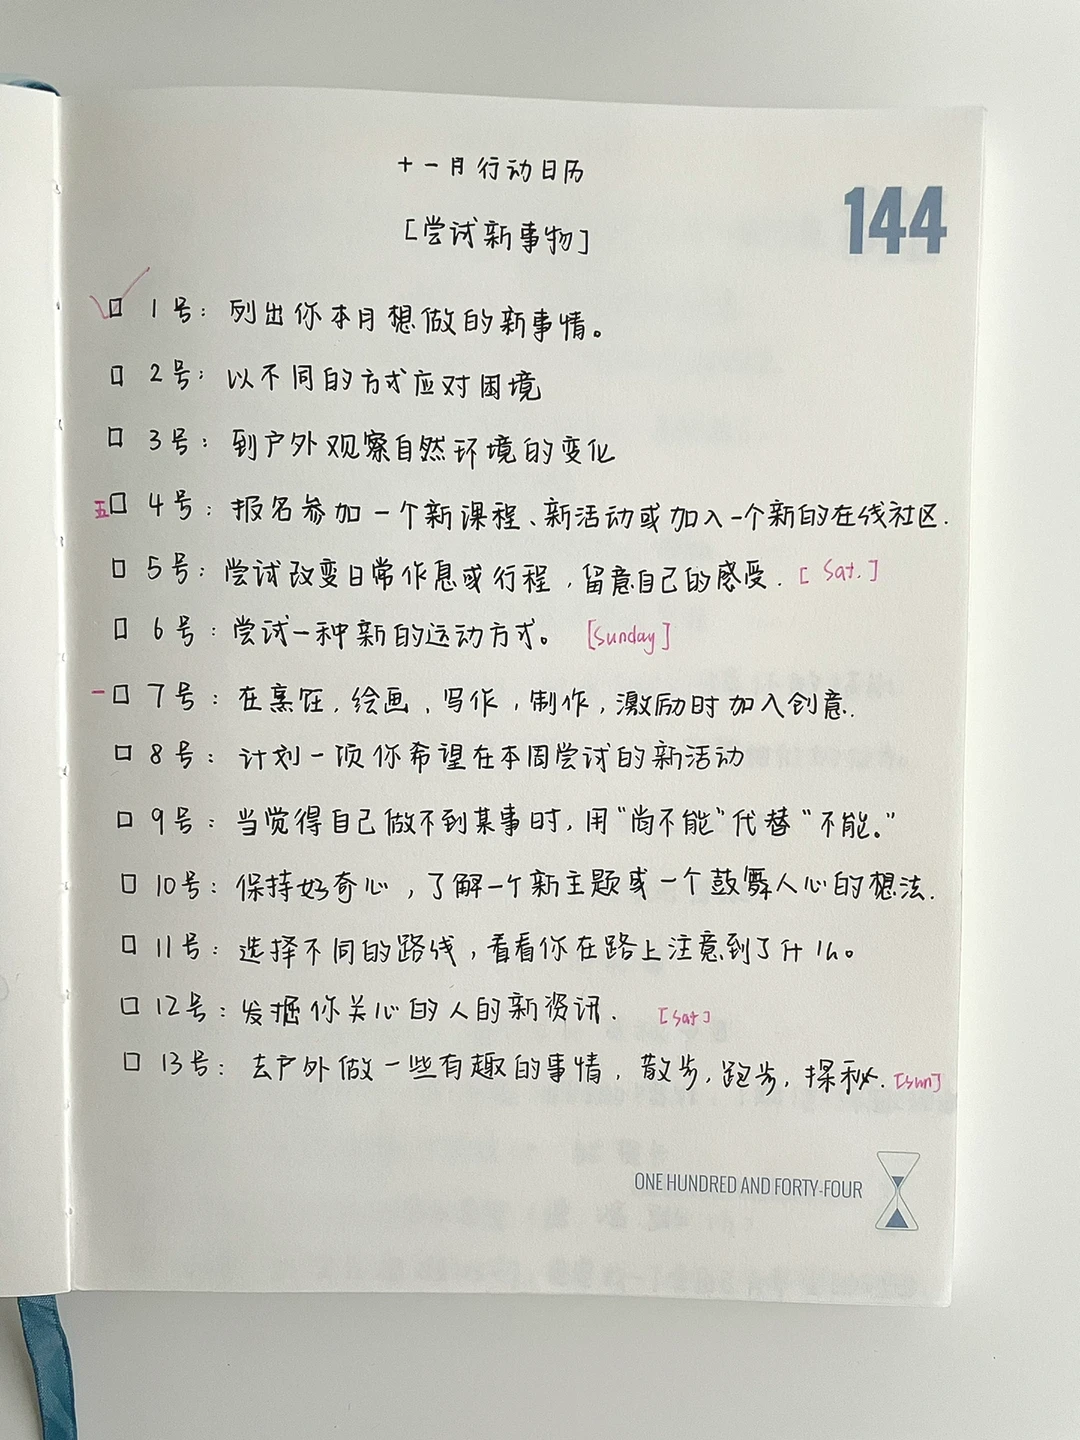 十一月行动日历
144
[尝试新事物]
□ 1号：列出你本月想做的新事情。
□ 2号：以不同的方式应对困境
□ 3号：到户外观察自然环境的变化
五 □ 4号：报名参加一个新课程、新活动或加入一个新的在线社区.
□ 5号：尝试改变日常作息或行程，留意自己的感受. [Sat.]
□ 6号：尝试一种新的运动方式。 [Sunday]
一 □ 7号：在烹饪，绘画、写作，制作，激励时加入创意.
□ 8号：计划一项你希望在本周尝试的新活动
□ 9号：当觉得自己做不到某事时，用“尚不能”代替“不能。”
□ 10号：保持好奇心，了解一个新主题或一个鼓舞人心的想法.
□ 11号：选择不同的路线，看看你在路上注意到了什么。
□ 12号：发掘你关心的人的新资讯. [Sat]
□ 13号：去户外做一些有趣的事情，散步，跑步，探秘. [sun]
ONE HUNDRED AND FORTY-FOUR